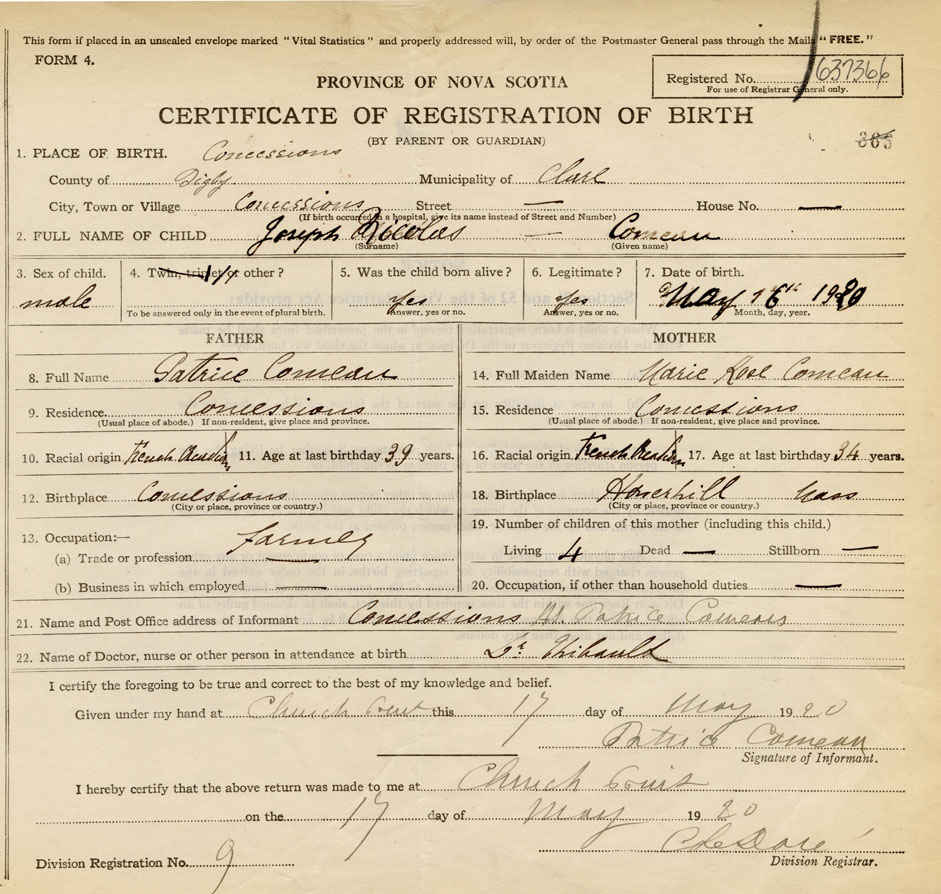 This form if placed in an unsealed envelope marked "Vital Statistics" and properly addressed will, by order of the Postmaster General pass through the Mails "FREE."
FORM 4.
Registered No. 637366
For use of Registrar General only.
PROVINCE OF NOVA SCOTIA
CERTIFICATE OF REGISTRATION OF BIRTH
(BY PARENT OR GUARDIAN)
385
1. PLACE OF BIRTH. Concessions
County of Digby Municipality of Clare
City, Town or Village Concessions Street — House No. —
(If birth occurred in a hospital, give its name instead of Street and Number)
2. FULL NAME OF CHILD Joseph Nicolas — Comeau
(Surname) (Given name)
3. Sex of child. 4. Twin, triplet or other? 5. Was the child born alive? 6. Legitimate? 7. Date of birth.
male Yes Yes May 16th 1920
To be answered only in the event of plural birth. Answer, yes or no. Answer, yes or no. Month, day, year.
FATHER MOTHER
8. Full Name Patrice Comeau 14. Full Maiden Name Marie Rose Comeau
9. Residence Concessions 15. Residence Concessions
(Usual place of abode.) If non-resident, give place and province. (Usual place of abode.) If non-resident, give place and province.
10. Racial origin French 11. Age at last birthday 39 years. 16. Racial origin French 17. Age at last birthday 34 years.
12. Birthplace Concessions 18. Birthplace Haverhill Mass
(City or place, province or country.) (City or place, province or country.)
19. Number of children of this mother (including this child.)
13. Occupation:— farmer
(a) Trade or profession — Living 4 Dead — Stillborn —
(b) Business in which employed — 20. Occupation, if other than household duties —
21. Name and Post Office address of Informant Concessions Patrice Comeau
22. Name of Doctor, nurse or other person in attendance at birth Dr Thibault
I certify the foregoing to be true and correct to the best of my knowledge and belief.
Given under my hand at Church Point this 17 day of May 1920
Patrice Comeau
Signature of Informant.
I hereby certify that the above return was made to me at Church Point
on the 17 day of May 1920
Division Registration No. 9 Division Registrar.